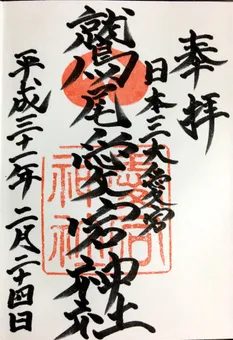 奉拝
日本三大愛宕
鷲尾愛宕神社
平成三十一年二月二十四日
愛宕
神社